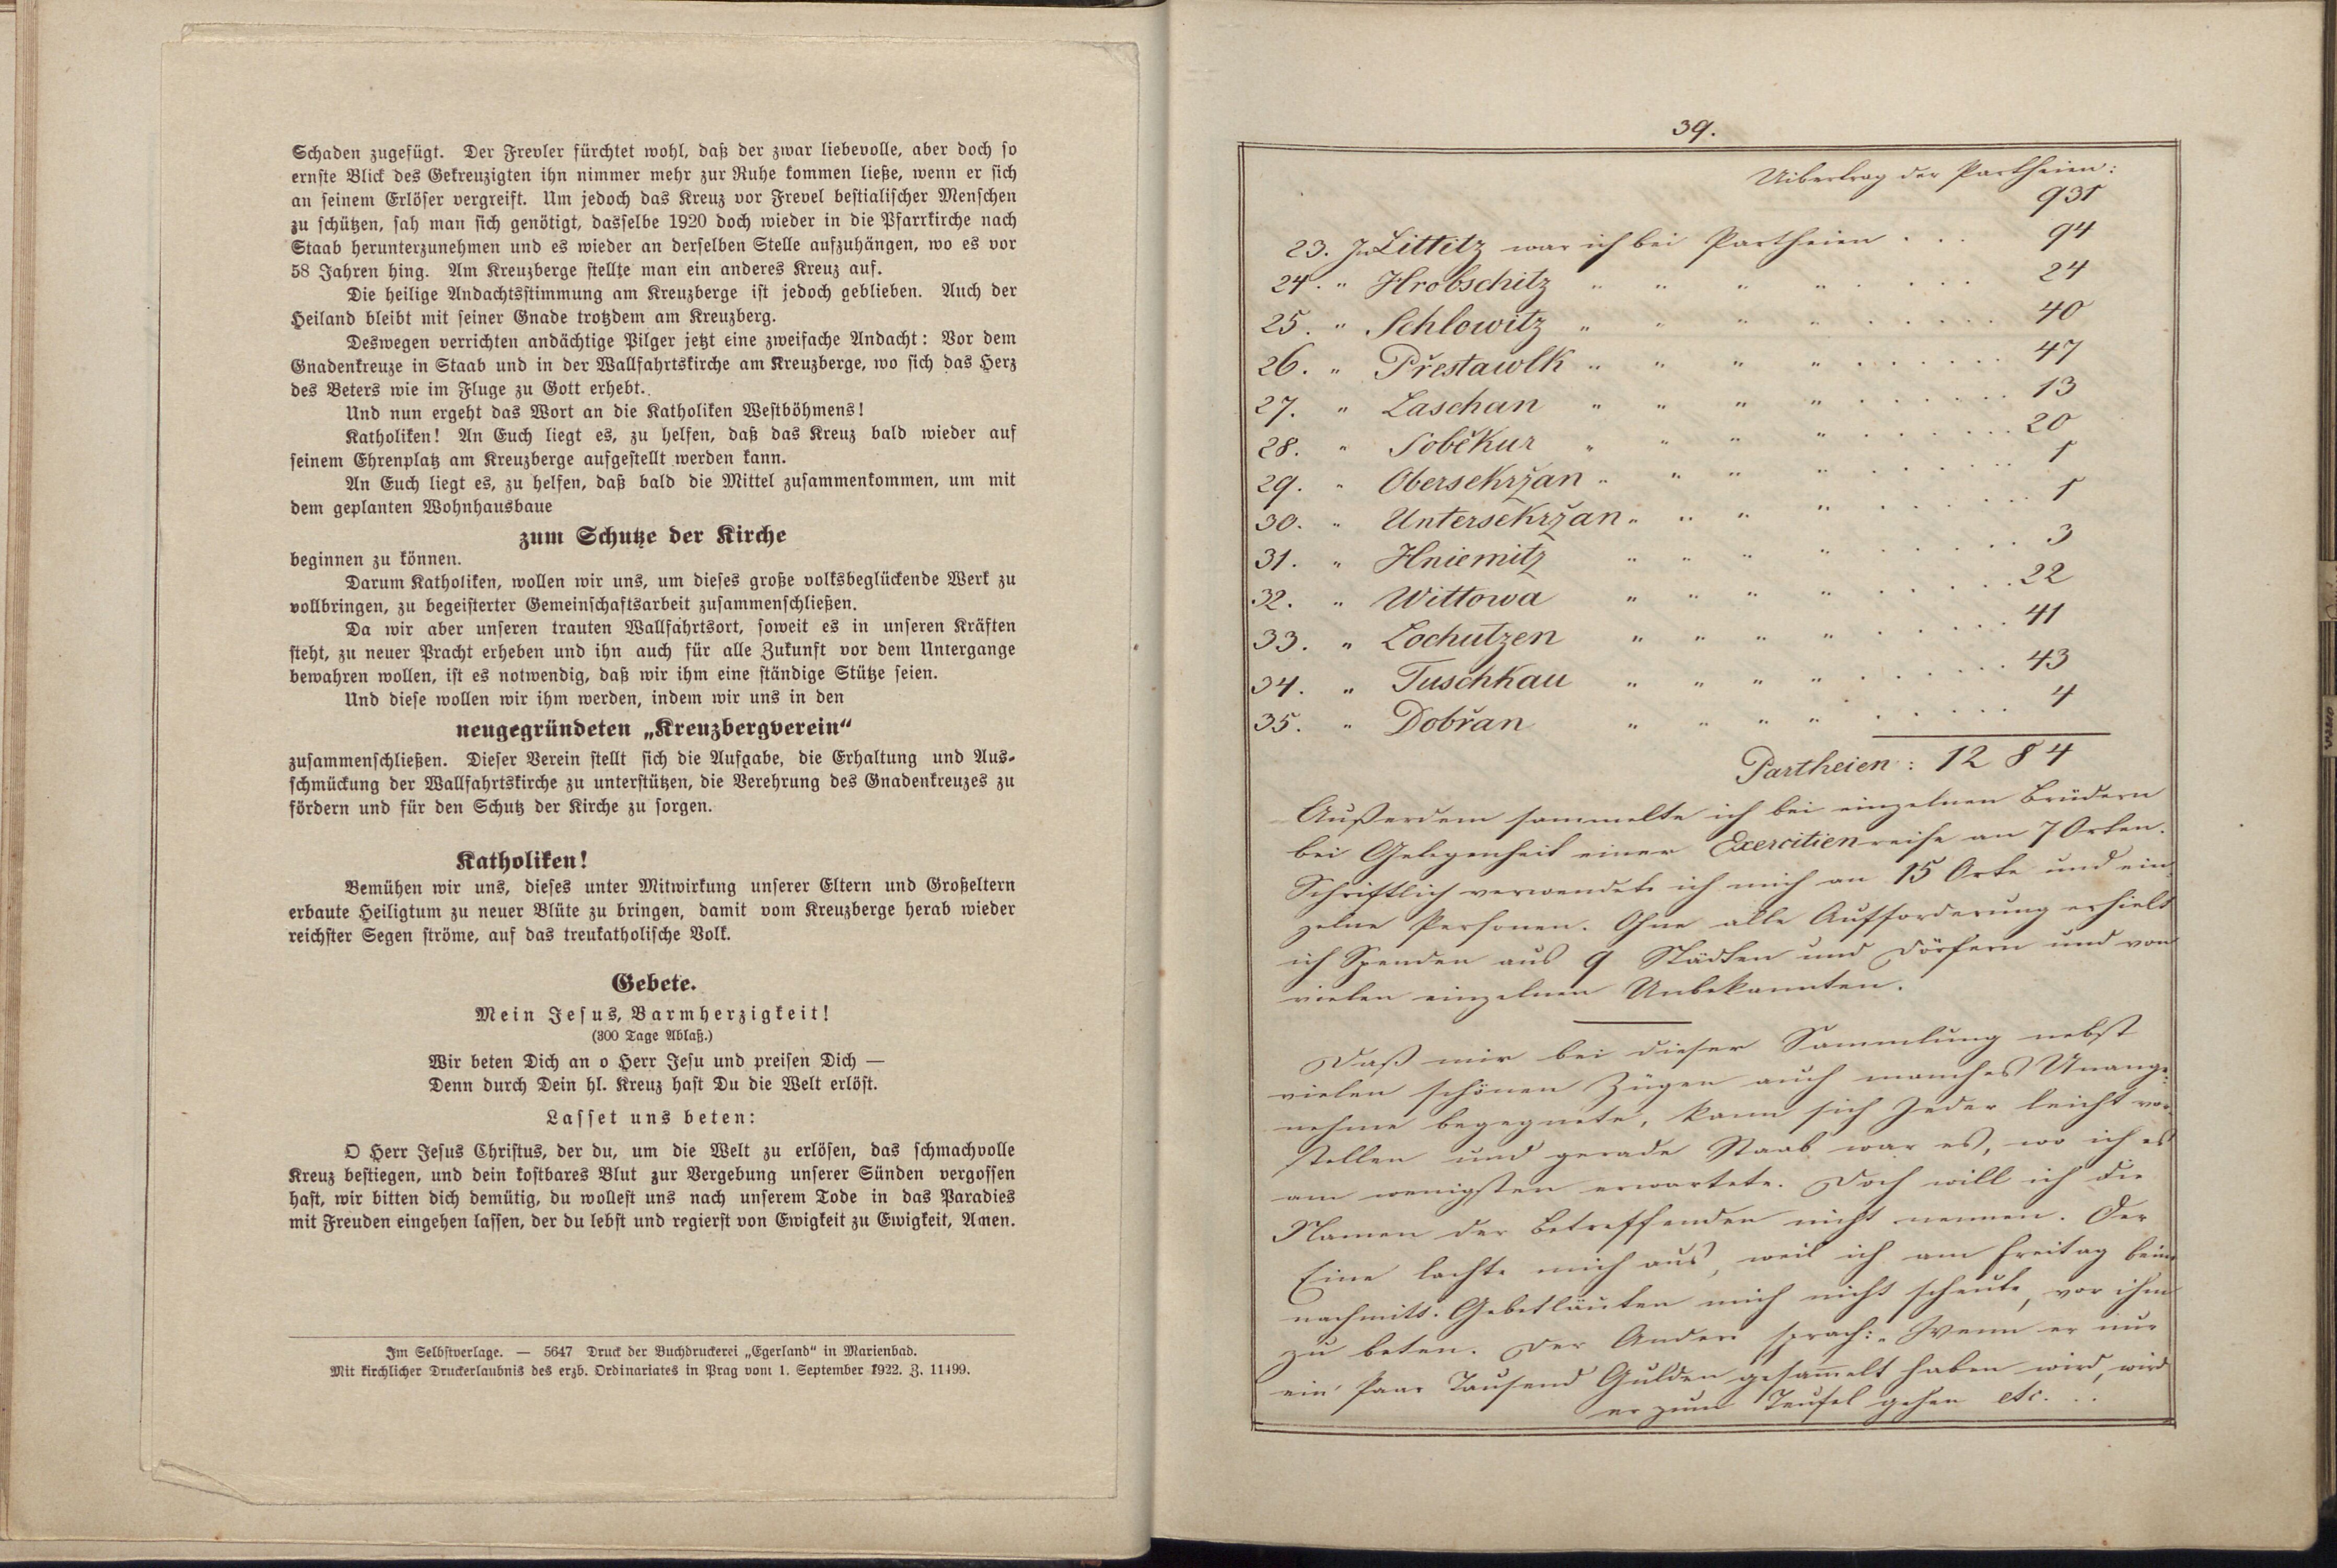 Schaden zugefügt. Der Frevler fürchtet wohl, daß der zwar liebevolle, aber doch so
ernste Blick des Gekreuzigten ihn nimmer mehr zur Ruhe kommen ließe, wenn er sich
an seinem Erlöser vergreift. Um jedoch das Kreuz vor Frevel bestialischer Menschen
zu schützen, sah man sich genötigt, dasselbe 1920 doch wieder in die Pfarrkirche nach
Staab herunterzunehmen und es wieder an derselben Stelle aufzuhängen, wo es vor
58 Jahren hing. Am Kreuzberge stellte man ein anderes Kreuz auf.
Die heilige Andachtsstimmung am Kreuzberge ist jedoch geblieben. Auch der
Heiland bleibt mit seiner Gnade trotzdem am Kreuzberg.
Deswegen verrichten andächtige Pilger jetzt eine zweifache Andacht: Vor dem
Gnadenkreuze in Staab und in der Wallfahrtskirche am Kreuzberge, wo sich das Herz
des Beters wie im Fluge zu Gott erhebt.
Und nun ergeht das Wort an die Katholiken Westböhmens!
Katholiken! An Euch liegt es, zu helfen, daß das Kreuz bald wieder auf
seinem Ehrenplatz am Kreuzberge aufgestellt werden kann.
An Euch liegt es, zu helfen, daß bald die Mittel zusammenkommen, um mit
dem geplanten Wohnhausbaue
zum Schutze der Kirche
beginnen zu können.
Darum Katholiken, wollen wir uns, um dieses große volksbeglückende Werk zu
vollbringen, zu begeisterter Gemeinschaftsarbeit zusammenschließen.
Da wir aber unseren trauten Wallfahrtsort, soweit es in unseren Kräften
steht, zu neuer Pracht erheben und ihn auch für alle Zukunft vor dem Untergange
bewahren wollen, ist es notwendig, daß wir ihm eine ständige Stütze seien.
Und diese wollen wir ihm werden, indem wir uns in den
neugegründeten „Kreuzbergverein“
zusammenschließen. Dieser Verein stellt sich die Aufgabe, die Erhaltung und Aus-
schmückung der Wallfahrtskirche zu unterstützen, die Verehrung des Gnadenkreuzes zu
fördern und für den Schutz der Kirche zu sorgen.
Katholiken!
Bemühen wir uns, dieses unter Mitwirkung unserer Eltern und Großeltern
erbaute Heiligtum zu neuer Blüte zu bringen, damit vom Kreuzberge herab wieder
reichster Segen ströme, auf das treukatholische Volk.
Gebete.
Mein Jesus, Barmherzigkeit!
(300 Tage Ablaß.)
Wir beten Dich an o Herr Jesu und preisen Dich —
Denn durch Dein hl. Kreuz hast Du die Welt erlöst.
Lasset uns beten:
O Herr Jesus Christus, der du, um die Welt zu erlösen, das schmachvolle
Kreuz bestiegen, und dein kostbares Blut zur Vergebung unserer Sünden vergossen
hast, wir bitten dich demütig, du wollest uns nach unserem Tode in das Paradies
mit Freuden eingehen lassen, der du lebst und regierst von Ewigkeit zu Ewigkeit, Amen.
Im Selbstverlage. — 5647 Druck der Buchdruckerei „Egerland“ in Marienbad.
Mit kirchlicher Druckerlaubnis des erzb. Ordinariates in Prag vom 1. September 1922. Z. 11499.
39.
Uibertrag der Partheien:
931
23. In Littitz war ich bei Partheien . . . 94
24. " Hrobschitz " " " " . . . . 24
25. " Schlowitz " " " " . . . . . 40
26. " Přestawlk " " " " . . . . . . 47
27. " Laschan " " " " . . . . . . 13
28. " Soběkur " " " " . . . . . . 20
29. " Obersekržan " " " " . . . . . 1
30. " Untersekržan " " " " . . . . . 1
31. " Hniemitz " " " " . . . . . 3
32. " Wittowa " " " " . . . . . 22
33. " Lochutzen " " " " . . . . . 41
34. " Tuschkau " " " " . . . . . . 43
35. " Dobřan " " " " . . . . . 4
Partheien: 1284
Außerdem sammelte ich bei einzelnen Brüdern
bei Gelegenheit einer Exercitienreise an 7 Orten.
Schriftlich verwendete ich mich an 15 Orte und ein-
zelne Personen. Ohne alle Aufforderung erhielt
ich Spenden aus 9 Städten und Dörfern und von
vielen einzelnen Unbekannten.
Daß mir bei dieser Sammlung nebst
vielen schönen Zügen auch manches Unange-
nehme begegnete, kann sich Jeder leicht vor-
stellen und gerade Staab war es, wo ich es
am wenigsten erwartete. Doch will ich die
Namen der Betreffenden nicht nennen. Der
Eine lachte mich aus, weil ich am Freitag beim
nachmitt. Gebetläuten mich nicht scheute, vor ihm
zu beten. Der Andere sprach: „Wenn er nur
ein Paar Tausend Gulden gesammelt haben wird, wird
er zum Teufel gehen etc. . .